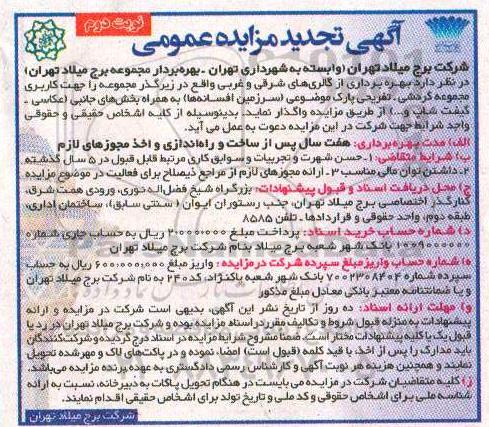 نوبت دوم
آگهی تجدید مزایده عمومی
شرکت برج میلاد تهران (وابسته به شهرداری تهران - بهره‌بردار مجموعه برج میلاد تهران)
در نظر دارد بهره برداری از گالری‌های شرقی و غربی واقع در زیرگذر مجموعه را جهت کاربری
مجموعه گردشی - تفریحی پارک موضوعی (سرزمین افسانه‌ها) به همراه بخش‌های جانبی (عکاسی -
گیفت شاپ و...) از طریق مزایده واگذار نماید. بدینوسیله از کلیه اشخاص حقیقی و حقوقی
واجد شرایط جهت شرکت در این مزایده دعوت به عمل می آید.
الف: مدت بهره‌برداری: هفت سال پس از ساخت و راه‌اندازی و اخذ مجوزهای لازم
ب) شرایط متقاضی: ۱- حسن شهرت و تجربیات و سوابق کاری مرتبط قابل قبول در ۵ سال گذشته
۲- داشتن توان مالی مناسب ۳- ارائه مجوزهای لازم از مراجع ذیصلاح برای فعالیت در موضوع مزایده
ج) محل دریافت اسناد و قبول پیشنهادات: بزرگراه شیخ فضل‌اله نوری، ورودی هفت شرق،
کنارگذر اختصاصی برج میلاد تهران، جنب رستوران ایوان (سنتی سابق)، ساختمان اداری،
طبقه دوم، واحد حقوقی و قراردادها - تلفن ۸۵۸۵
د) شماره حساب خرید اسناد: پرداخت مبلغ ۲۰۰۰۰۰۰ ریال به حساب جاری شماره
بانک شهر شعبه برج میلاد بنام شرکت برج میلاد تهران
ه) شماره حساب واریز مبلغ سپرده شرکت در مزایده: واریز مبلغ ۶۰۰۰۰۰۰۰۰ ریال به حساب
سپرده شماره ۷۰۰۲۳۰۸۴۰۴ بانک شهر شعبه پاکنژاد، کد ۲۴۰ به نام شرکت برج میلاد تهران
و یا ضمانتنامه معتبر بانکی معادل مبلغ مذکور
و) مهلت ارائه اسناد: ده روز از تاریخ نشر این آگهی، بدیهی است شرکت در مزایده و ارائه
پیشنهادات به منزله قبول شروط و تکالیف مقرر در اسناد مزایده بوده و شرکت برج میلاد تهران در رد یا
قبول یک یا کلیه پیشنهادات مختار است. ضمنا مشروح شرایط مزایده در اسناد درج گردیده و شرکت‌کنندگان
باید مدارک را پس از اخذ، با قید کلمه (قبول است) امضا، نموده و در پاکت‌های لاک و مهرشده تحویل
نمایند و همچنین هزینه هر نوبت آگهی و کارشناس رسمی دادگستری به عهده برنده مزایده می‌باشد.
ز) کلیه متقاضیان شرکت در مزایده می بایست در هنگام تحویل پاکات به دبیرخانه، نسبت به ارائه
شناسه ملی برای اشخاص حقوقی و کد ملی و تاریخ تولد برای اشخاص حقیقی اقدام نمایند.
شرکت برج میلاد تهران